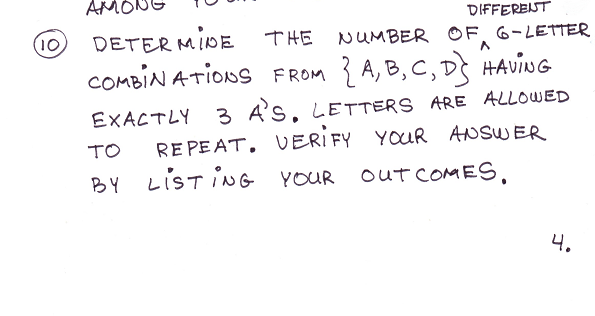 AMONG
DIFFERENT
10 DETERMINE THE NUMBER OF ^ 6-LETTER
COMBINATIONS FROM {A, B, C, D} HAVING
EXACTLY 3 A'S. LETTERS ARE ALLOWED
TO REPEAT. VERIFY YOUR ANSWER
BY LISTING YOUR OUTCOMES.
4.